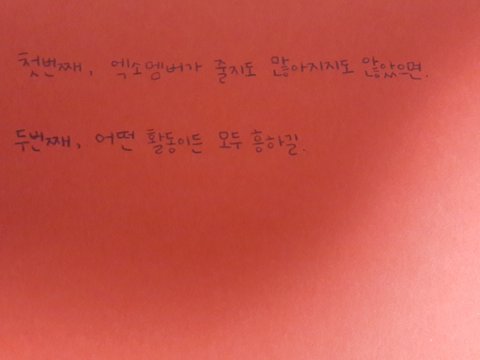 첫번째, 엑소멤버가 줄지도 많아지지도 않았으면.
두번째, 어떤 활동이든 모두 흥하길.